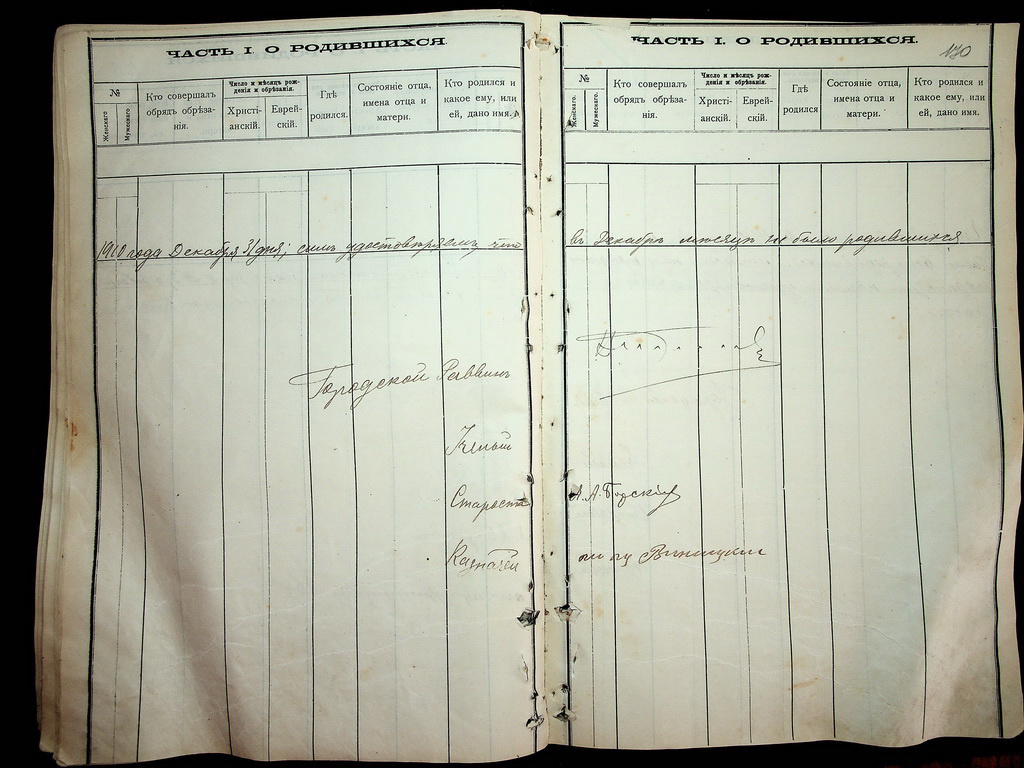 ЧАСТЬ I. О РОДИВШИХСЯ.
№
Женскаго.
Мужескаго.
Кто совершалъ
обрядъ обрѣза-
нія.
Число и мѣсяцъ рож-
денія и обрѣзанія.
Христі-
анскій.
Еврей-
скій.
Гдѣ
родился.
Состояніе отца,
имена отца и
матери.
Кто родился и
какое ему, или
ей, дано имя.
1910 года Декабря 31 дня; симъ удостовѣряемъ, что
Городской Раввинъ
Ученый
Староста
Казначей
ЧАСТЬ I. О РОДИВШИХСЯ.
170
№
Женскаго.
Мужескаго.
Кто совершалъ
обрядъ обрѣза-
нія.
Число и мѣсяцъ рож-
денія и обрѣзанія.
Христі-
анскій.
Еврей-
скій.
Гдѣ
родился
Состояніе отца,
имена отца и
матери.
Кто родился и
какое ему, или
ей, дано имя.
въ Декабрѣ мѣсяцѣ не было родившихся
А. А.